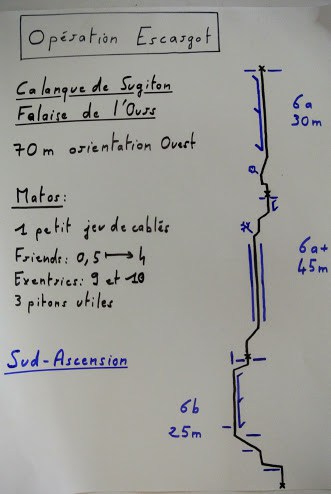 Opération Escargot
Calanque de Sugiton
Falaise de l'Ours
70 m orientation Ouest
Matos:
1 petit jeu de cablés
Friends: 0,5 ↦ 4
Exentrics: 9 et 10
3 pitons utiles
Sud-Ascension
6a
30m
6a+
45m
6b
25m